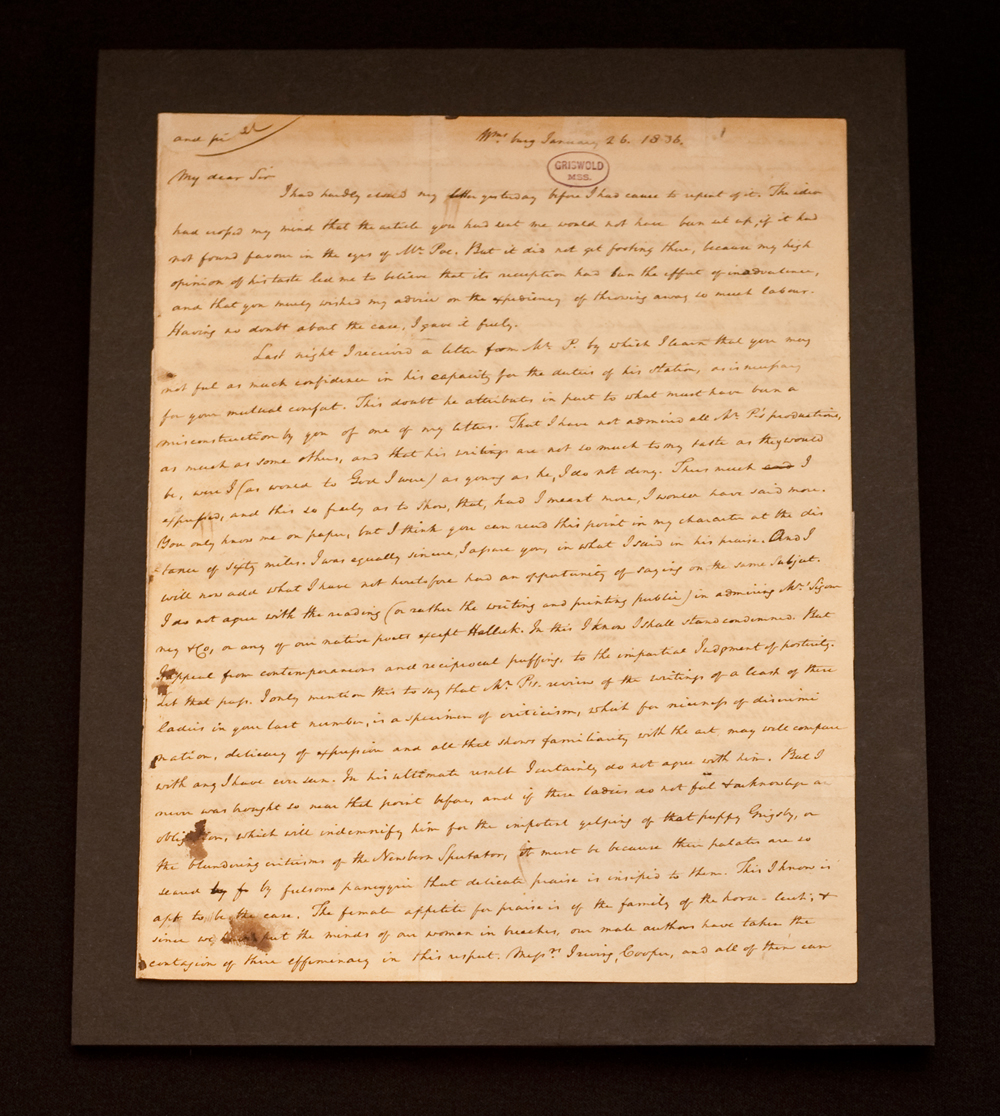 Wms burg January 26. 1836.
GRISWOLD
MSS.
My dear Sir
I had hardly closed my letter yesterday before I had cause to repent of it. The idea
had crossed my mind that the article you had sent me would not have been set up, if it had
not found favour in the eyes of Mr. Poe. But it did not get footing there, because my high
opinion of his taste led me to believe that its reception had been the effect of inadvertence,
and that you merely wished my advice on the expediency of throwing away so much labour.
Having no doubt about the case, I gave it freely.
Last night I received a letter from Mr. P. by which I learn that you may
not feel as much confidence in his capacity for the duties of his station, as is necessary
for your mutual comfort. This doubt he attributes in part to what must have been a
misconstruction by you of one of my letters. That I have not admired all Mr. P's productions,
as much as some others, and that his writings are not so much to my taste as they would
be, were I (as would to God I were) as young as he, I do not deny. Thus much I
expressed, and this so freely as to show, that, had I meant more, I would have said more.
You only know me on paper, but I think you can read this point in my character at the dis
tance of sixty miles. I was equally sincere, I assure you, in what I said in his praise. And I
will now add what I have not heretofore had an opportunity of saying on the same subject.
I do not agree with the reading (or rather the writing and printing public) in admiring Mrs. Sigour
ney & Co, or any of our native poets except Halleck. In this I know I shall stand condemned. But
I appeal from contemporaneous and reciprocal puffing, to the impartial Judgment of posterity.
Let that pass. I only mention this to say that Mr. P's. review of the writings of a leash of these
ladies in your last number, is a specimen of criticism, which for niceness of discrimi
nation, delicacy of expression and all that shows familiarity with the art, may well compare
with any I have ever seen. In his ultimate result I certainly do not agree with him. But I
never was brought so near that point before, and if these ladies do not feel & acknowledge an
obligation, which will indemnify him for the impotent yelping of that puppy Grigsby, or
the blundering criticisms of the Newbern Spectator, it must be because their palates are so
seared by fulsome panegyric that delicate praise is insipid to them. This I know is
apt to be the case. The female appetite for praise is of the family of the horse-leech; &
since we put the minds of our women in breeches, our male authors have taken the
contagion of their effeminacy in this respect. Messrs. Irving, Cooper, and all of them can